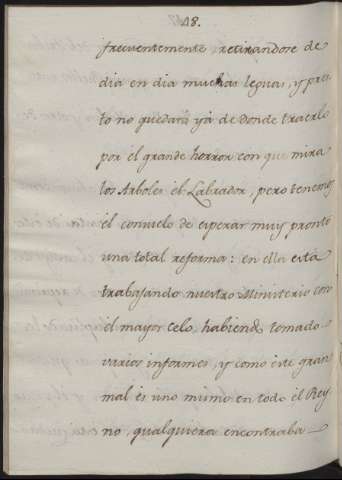 48.
frecuentemente, retirandose de
dia en dia muchas leguas, y pres-
to no quedará yá de donde traerlo
por el grande horror con que mira
los Arboles el Labrador, pero tenemos
el consuelo de esperar muy pronto
una total reforma: en ella está
trabajando nuestro Ministerio con
el mayor celo, habiendo tomado
varios informes, y como este gran
mal es uno mismo en todo el Rey-
no, qualquiera encontraba